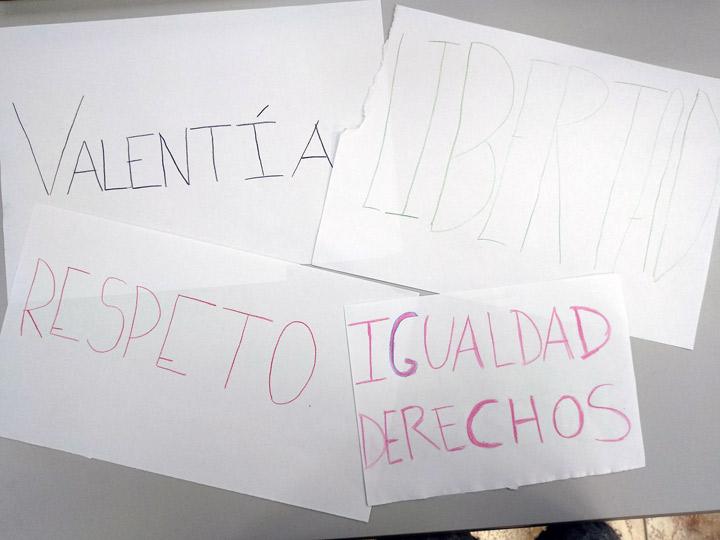 VALENTÍA
LIBERTAD
RESPETO
IGUALDAD
DERECHOS